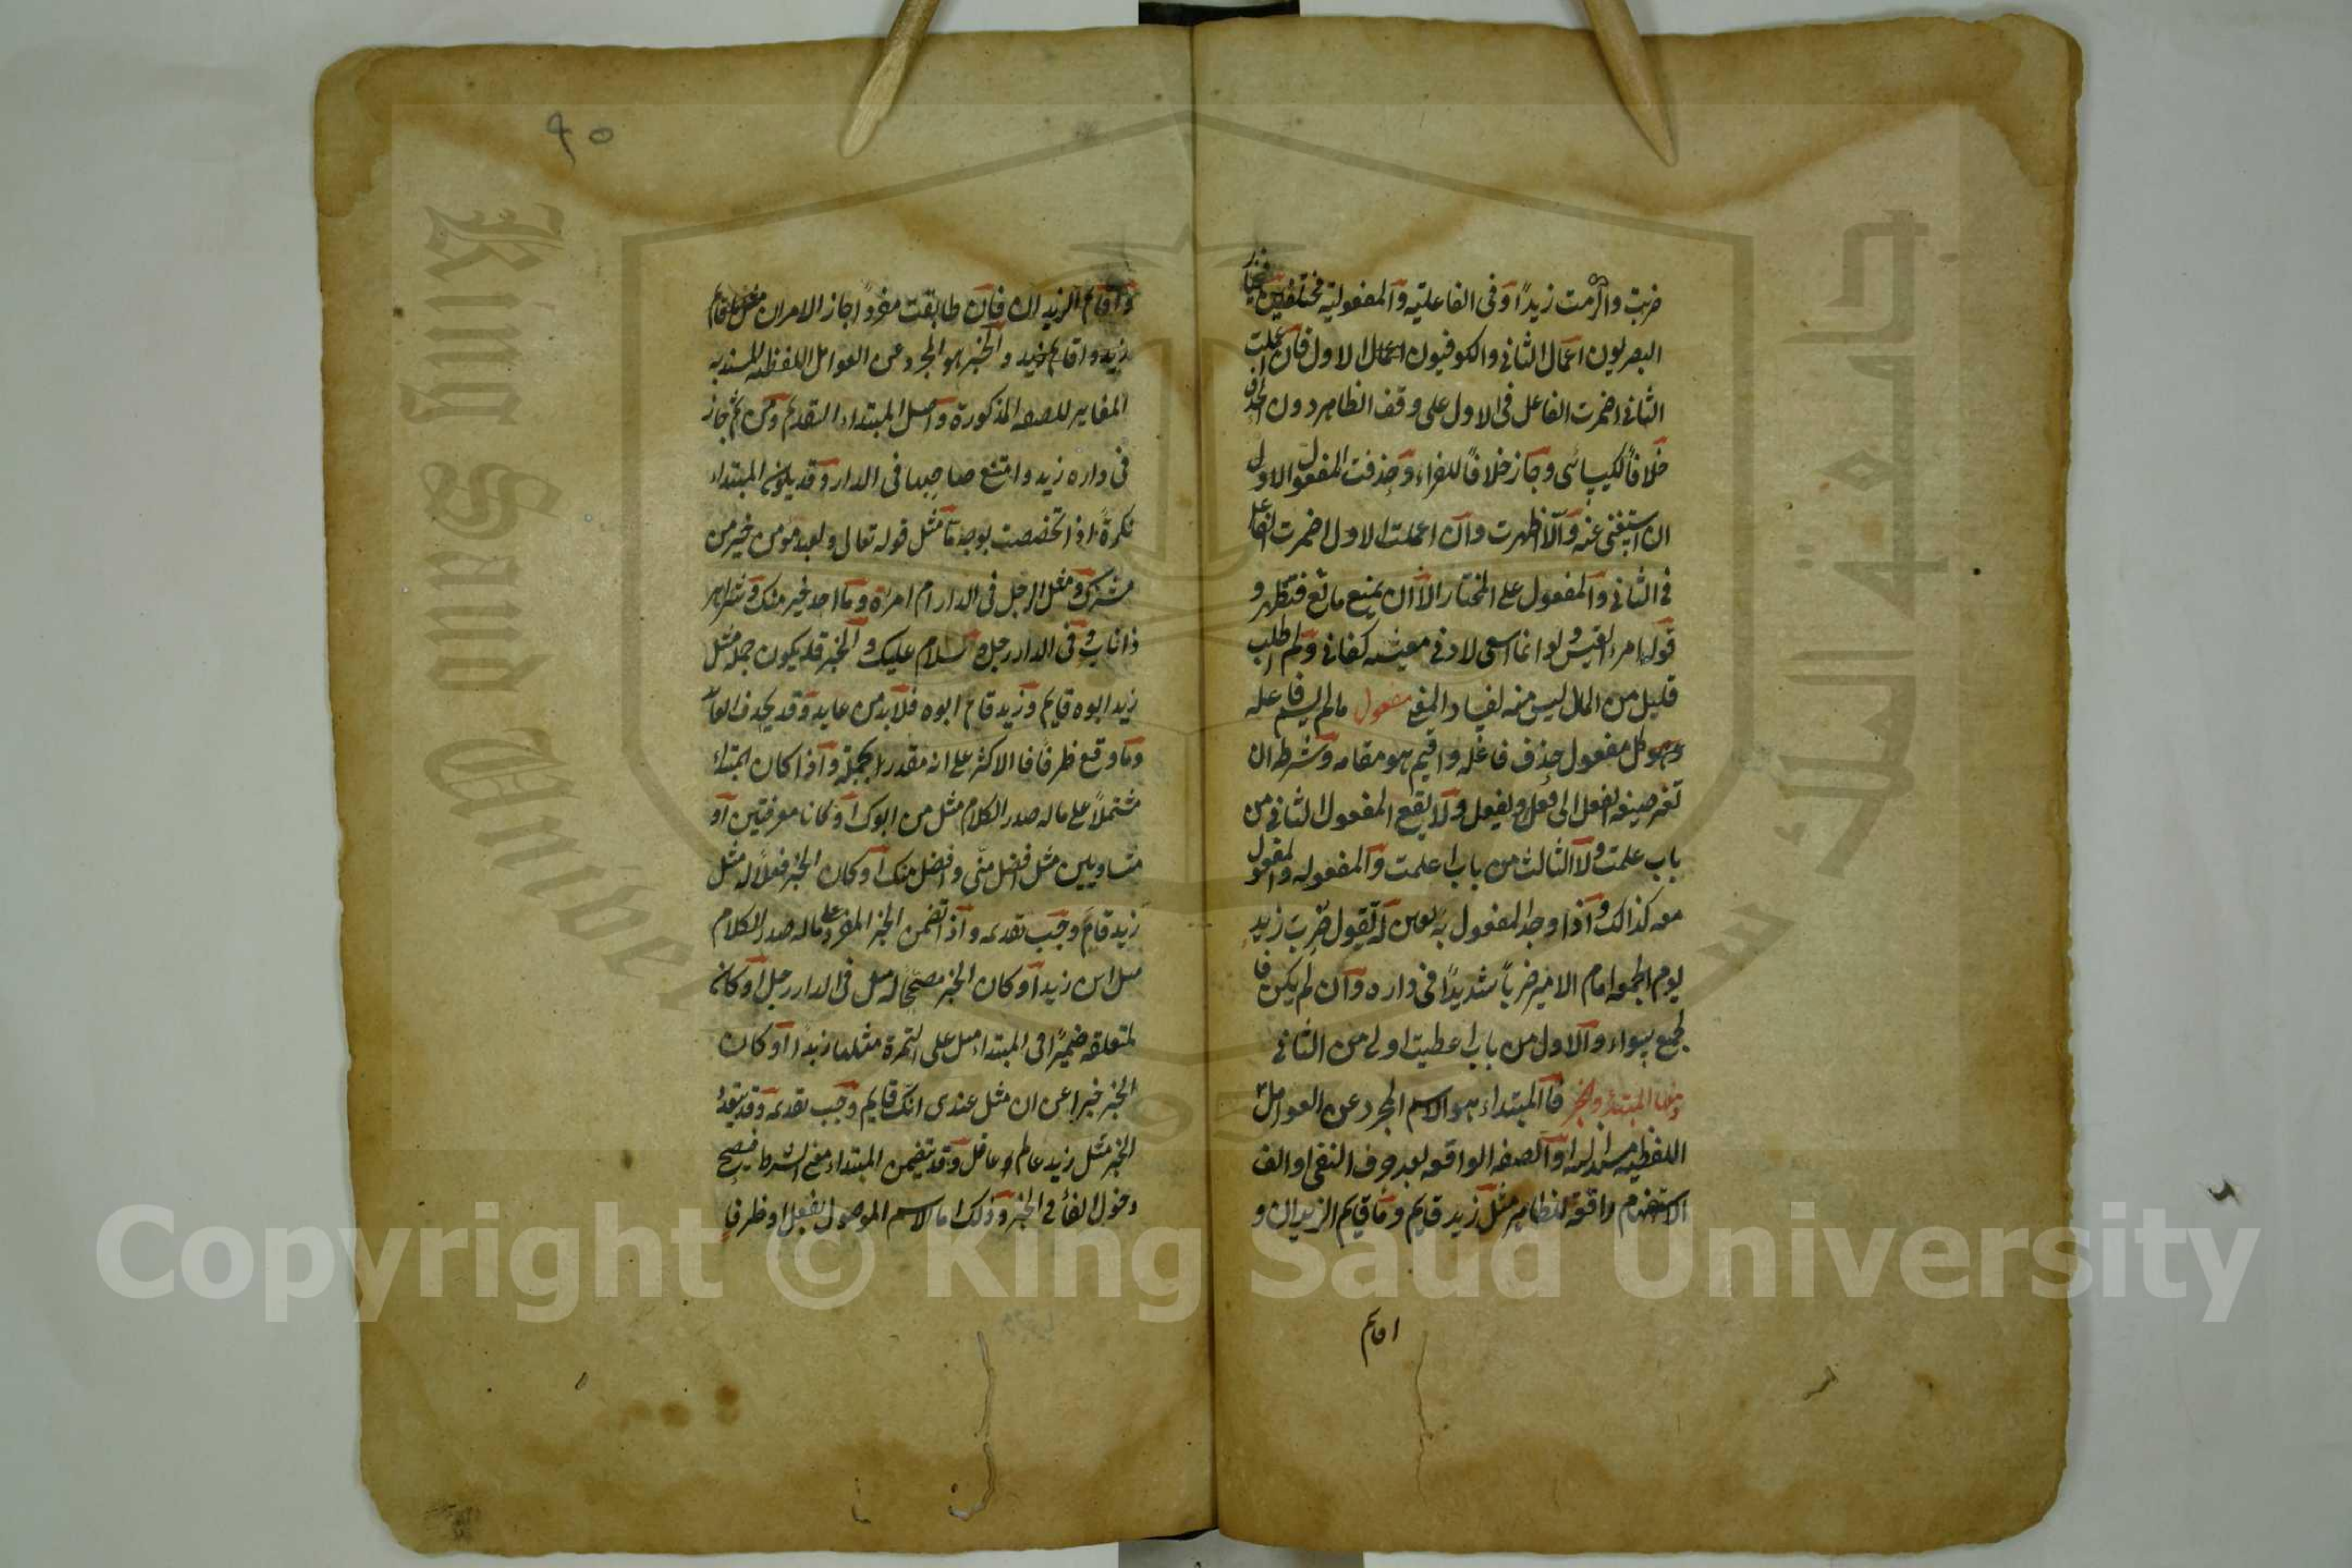 ضربت واكرمت زيدًا وفى الفاعلية والمفعولية مختلفين فيختار
البصريون اعمال الثانى والكوفيون اعمال الاول فان عملت
الثانى اضمرت الفاعل فى الاول على وفق الظاهر دون الحذف
خلافًا لكيسائى وجاز خلافًا للفراء وحذفت المفعول الاول
ان استغنى عنه والا اظهرت وان اعملت الاول اضمرت الفاعل
فى الثانى والمفعول على المختار الا ان يمنع مانع فتظهر و
قول امرء القيس ولو انما اسعى لادنى معيشه كفانى ولم اطلب
قليل من المال ليس منه لفساد المعنى مفعول مالم يسم فاعله
وهو كل مفعول حذف فاعله واقيم هو مقامه وشرطه ان
تغير صيغه الفعل الى فعل ويفعل ولا يقع المفعول الثانى من
باب علمت ولا الثالث من باب اعلمت والمفعول له والمفعول
معه كذالك واذا وجد المفعول به تعين له تقول ضرب زيد
يوم الجمعه امام الامير ضربًا شديدًا فى داره وان لم يكن فا
لجميع سواء والاول من باب اعطيت اولى من الثانى
ومنها المبتداء والخبر فالمبتداء هو الاسم المجرد عن العوامل
اللفظيه مسند اليه او الصفه الواقعه بعد حرف النفى او الف
الاستفهام رافعة لظاهر مثل زيد قايم وما قايم الزيدان و
اقام
٩٥
واقام الزيدان فان طابقت مفردًا جاز الامران مثل ماقام
زيد واقايم زيد والخبر هو المجرد عن العوامل اللفظيه المسند به
المغاير للصفه المذكورة واصل المبتداء التقديم ومن ثم جاز
فى داره زيد وامتنع صاحبها فى الدار وقد يكون المبتداء
نكرةً اذا تخصصت بوجه ما مثل قوله تعالى ولعبد مؤمن خير من
مشرك ومثل ارجل فى الدار ام امرأة وما احد خير منك وشر اهر
ذا ناب وفى الدار رجل وسلام عليك والخبر قد يكون جمله مثل
زيد ابوه قايم وزيد قام ابوه فلابد من عايد وقد يحذف العائد
وما وقع ظرفًا فا الاكثر على انه مقدر بجملة واذا كان المبتداء
مشتملاً على ماله صدر الكلام مثل من ابوك او كانا معرفتين او
متساويين مثل افضل منى وافضل منك او كان الخبر فعلاً له مثل
زيد قام وجب تقديمه واذا تضمن الخبر المفرد على ماله صدر الكلام
مثل اين زيد او كان الخبر مصححًا له مثل فى الدار رجل او كان
لمتعلقه ضميرًا فى المبتداء مثل على التمرة مثلها زبدًا او كان
الخبر خبرا عن ان مثل عندى انك قايم وجب تقديمه وقد يتعدد
الخبر مثل زيد عالم وعاقل وقد يتضمن المبتداء معنى الشرط فيصح
دخول الفاء فى الخبر وذلك اما الاسم الموصول بفعل او ظرف
Copyright © King Saud University
King Saud University
جامعة الملك سعود